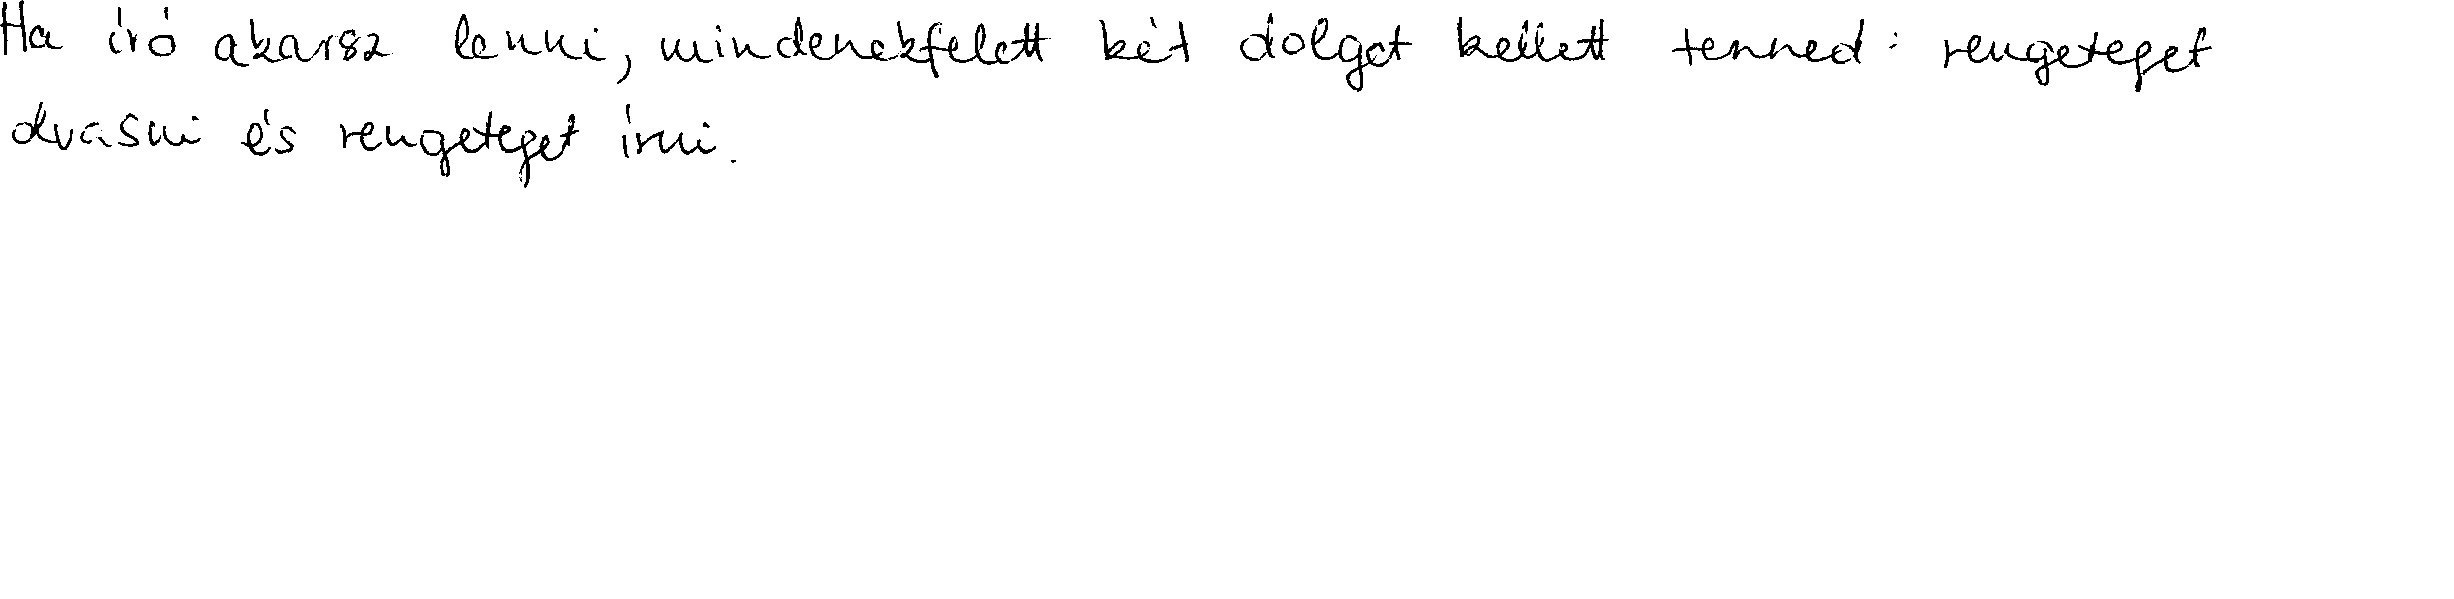 Ha író akarsz lenni, mindenekfelett két dolgot kellett tenned: rengeteget
olvasni és rengeteget írni.